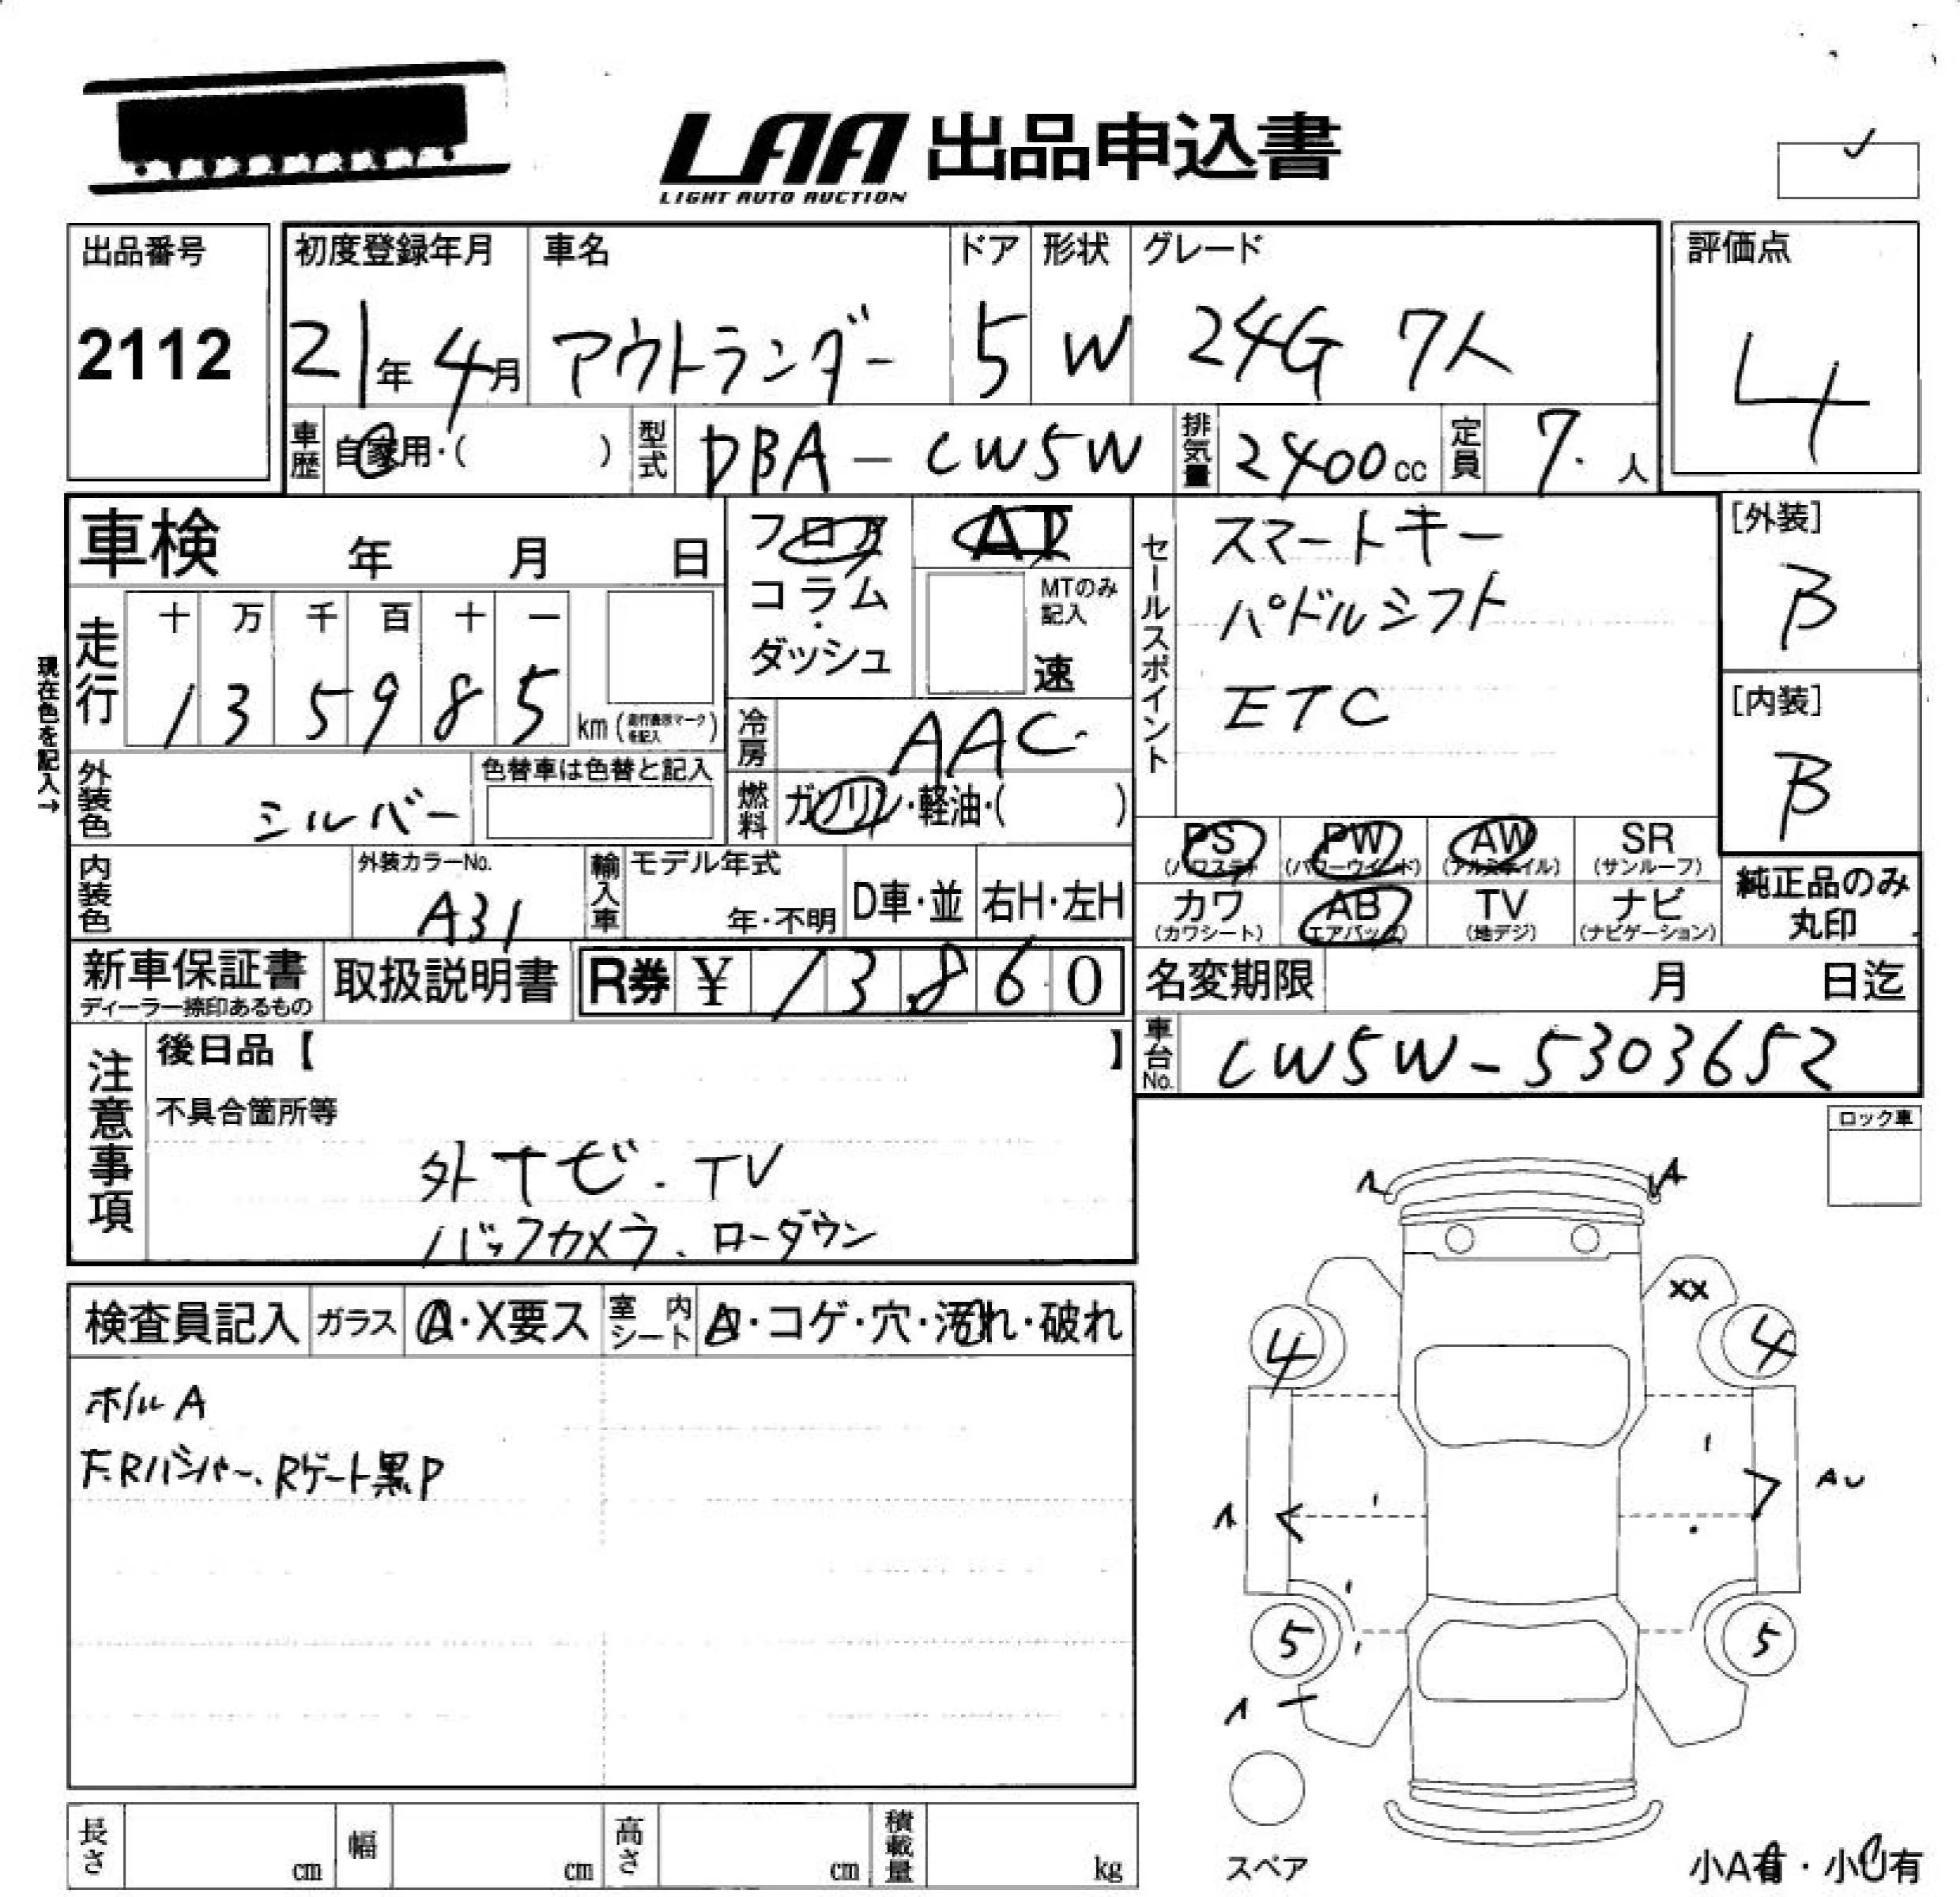 LAA 出品申込書
LIGHT AUTO AUCTION
出品番号
2112
初度登録年月
21年 4月
車名
アウトランダー
ドア
5
形状
W
グレード
24G 7人
評価点
4
車歴 自家用・( )
型式 DBA-CW5W
排気量 2400cc
定員 7.人
車検 年 月 日
フロア
コラム
・
ダッシュ
AT
MTのみ
記入
速
セールスポイント
スマートキー
パドルシフト
ETC
[外装]
B
[内装]
B
現在色を記入→
走行
十 万 千 百 十 一
1 3 5 9 8 5
km (走行表示マークを記入)
冷房 AAC.
外装色 シルバー
色替車は色替と記入
燃料 ガソリン・軽油・( )
PS (パワステ)
PW (パワーウインド)
AW (アルミホイル)
SR (サンルーフ)
カワ (カワシート)
AB (エアバッグ)
TV (地デジ)
ナビ (ナビゲーション)
純正品のみ
丸印
内装色
外装カラーNo.
A31
輸入車
モデル年式
年・不明
D車・並
右H・左H
新車保証書
ディーラー捺印あるもの
取扱説明書
R券 ¥ 13,860
名変期限 月 日迄
車台No. CW5W-5303652
注意事項
後日品【 】
不具合箇所等
外ナビ.TV
バックカメラ、ローダウン
ロック車
検査員記入
ガラス
A・X要ス
室内
シート
A・コゲ・穴・汚れ・破れ
ホイルA
F.Rバンパー、Rゲート黒P
A
XX
4
4
AU
5
5
スペア
小A有・小U有
長さ cm
幅 cm
高さ cm
積載量 kg